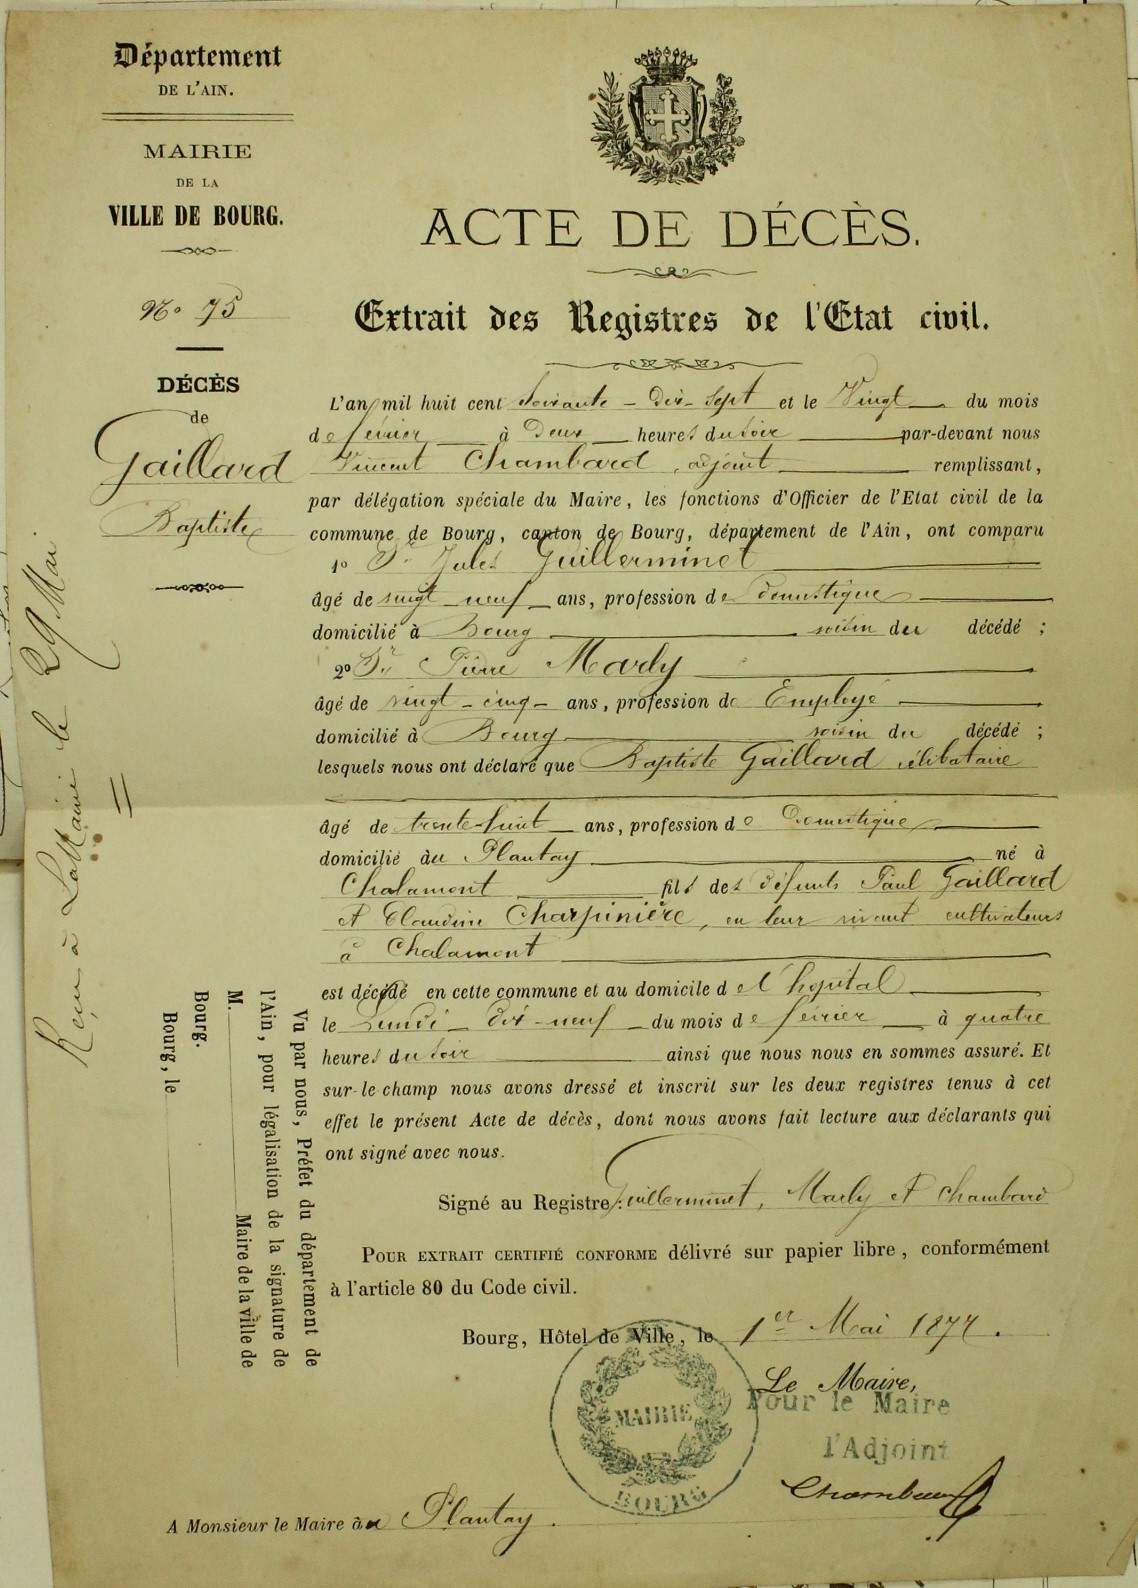 Département
DE L'AIN.
MAIRIE
DE LA
VILLE DE BOURG.
No 75
DÉCÈS
de
Gaillard
Baptiste
ACTE DE DÉCÈS.
Extrait des Registres de l'Etat civil.
L'an mil huit cent soixante-dix-sept et le Vingt du mois
de février à Deux heures du soir par-devant nous
Vincent Chambard, adjoint remplissant,
par délégation spéciale du Maire, les fonctions d'Officier de l'Etat civil de la
commune de Bourg, canton de Bourg, département de l'Ain, ont comparu
1o Sr Jules Guillerminet
âgé de vingt-neuf ans, profession de Domestique
domicilié à Bourg voisin du décédé ;
2o Sr Pierre Marly
âgé de vingt-cinq ans, profession de Employé
domicilié à Bourg voisin du décédé ;
lesquels nous ont déclaré que Baptiste Gaillard célibataire
âgé de trente-huit ans, profession de Domestique
domicilié au Plantay né à
Chalamont fils des défunts Paul Gaillard
et Claudine Charpinière, en leur vivant cultivateurs
à Chalamont
est décédé en cette commune et au domicile de l'hôpital
le Lundi dix-neuf du mois de février à quatre
heures du soir ainsi que nous nous en sommes assuré. Et
sur-le champ nous avons dressé et inscrit sur les deux registres tenus à cet
effet le présent Acte de décès, dont nous avons fait lecture aux déclarants qui
ont signé avec nous.
Signé au Registre : Guillerminet, Marly et Chambard
POUR EXTRAIT CERTIFIÉ CONFORME délivré sur papier libre, conformément
à l'article 80 du Code civil.
Bourg, Hôtel de Ville, le 1er Mai 1877.
Le Maire,
Pour le Maire
l'Adjoint
Chambard
MAIRIE
BOURG
A Monsieur le Maire au Plantay.
Reçu à La Mairie le 29 Mai
Vu par nous, Préfet du département de
l'Ain, pour légalisation de la signature de
M. Maire de la ville de
Bourg.
Bourg, le